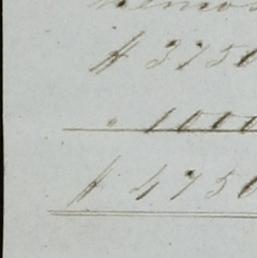 $ 3750
" 1000
$ 4750